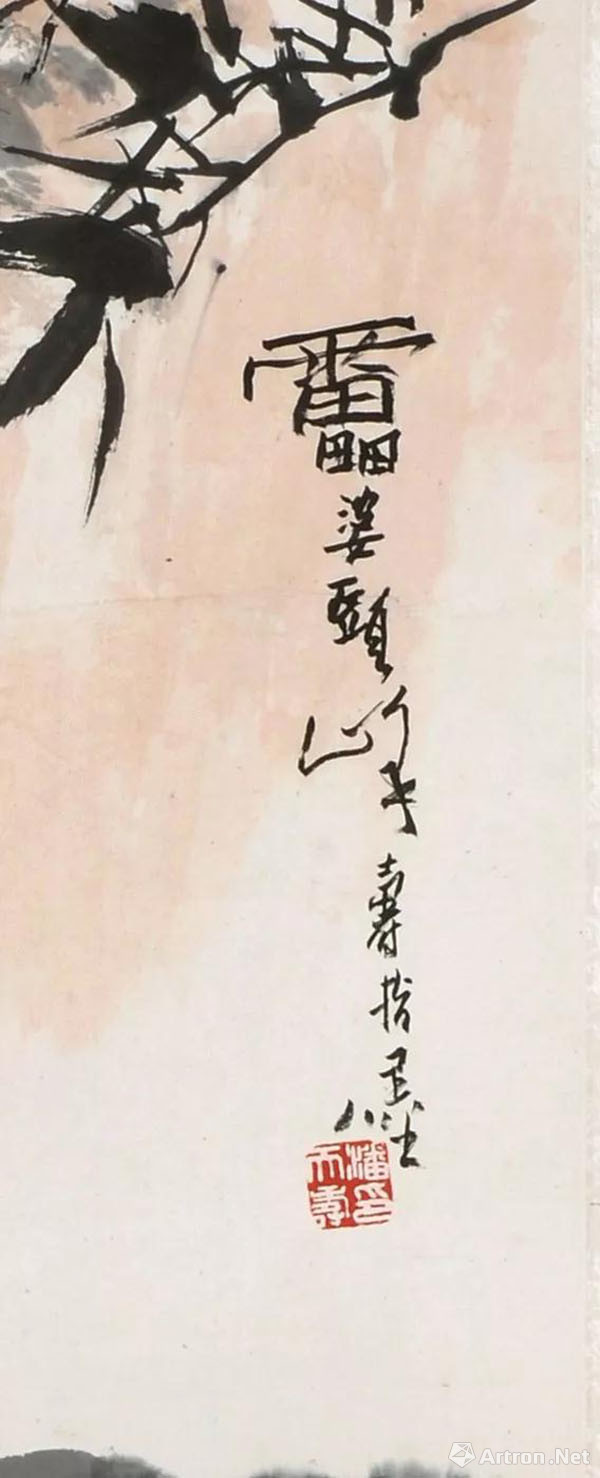 靁婆頭峰壽指墨
潘天壽印
Artron.Net